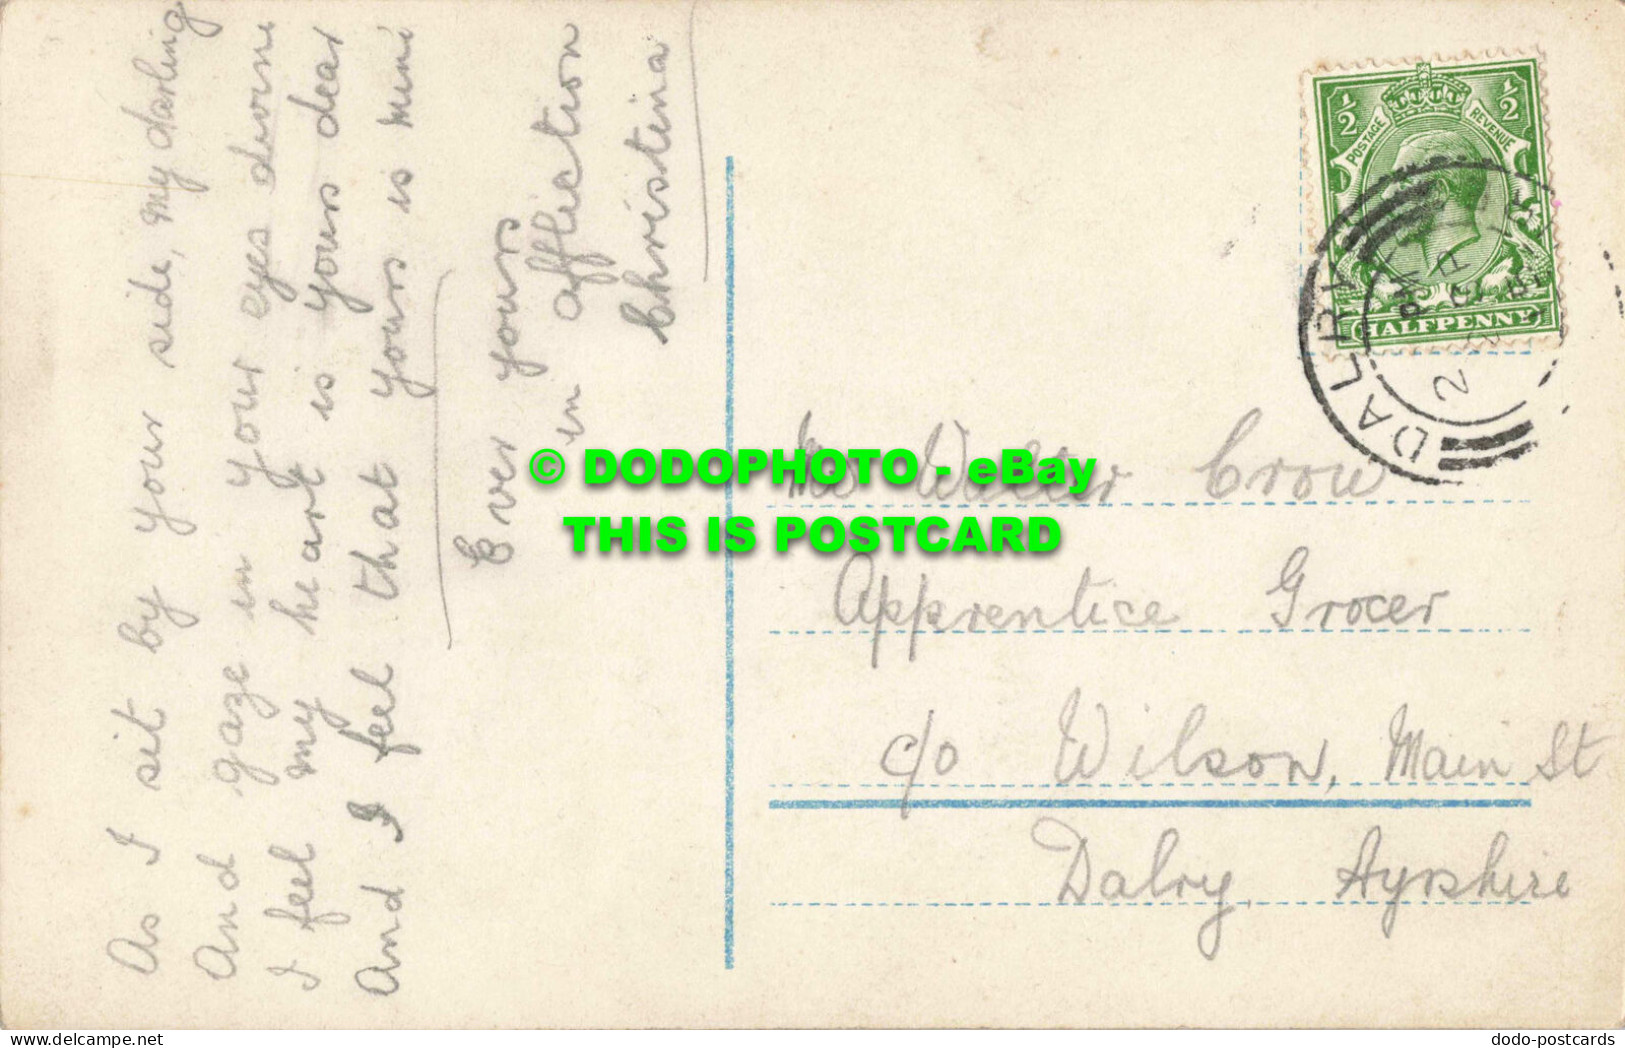 As I sit by your side, my darling
And gaze in your eyes divine
I feel my heart is yours dear
And I feel that yours is mine
Ever yours
in affection
Christina
½ ½
POSTAGE REVENUE
HALFPENNY
DALRY
PM
2
SP
15
© DODOPHOTO - eBay
THIS IS POSTCARD
Mr Walter Crow
Apprentice Grocer
c/o Wilson, Main St
Dalry, Ayrshire
www.delcampe.net
dodo-postcards